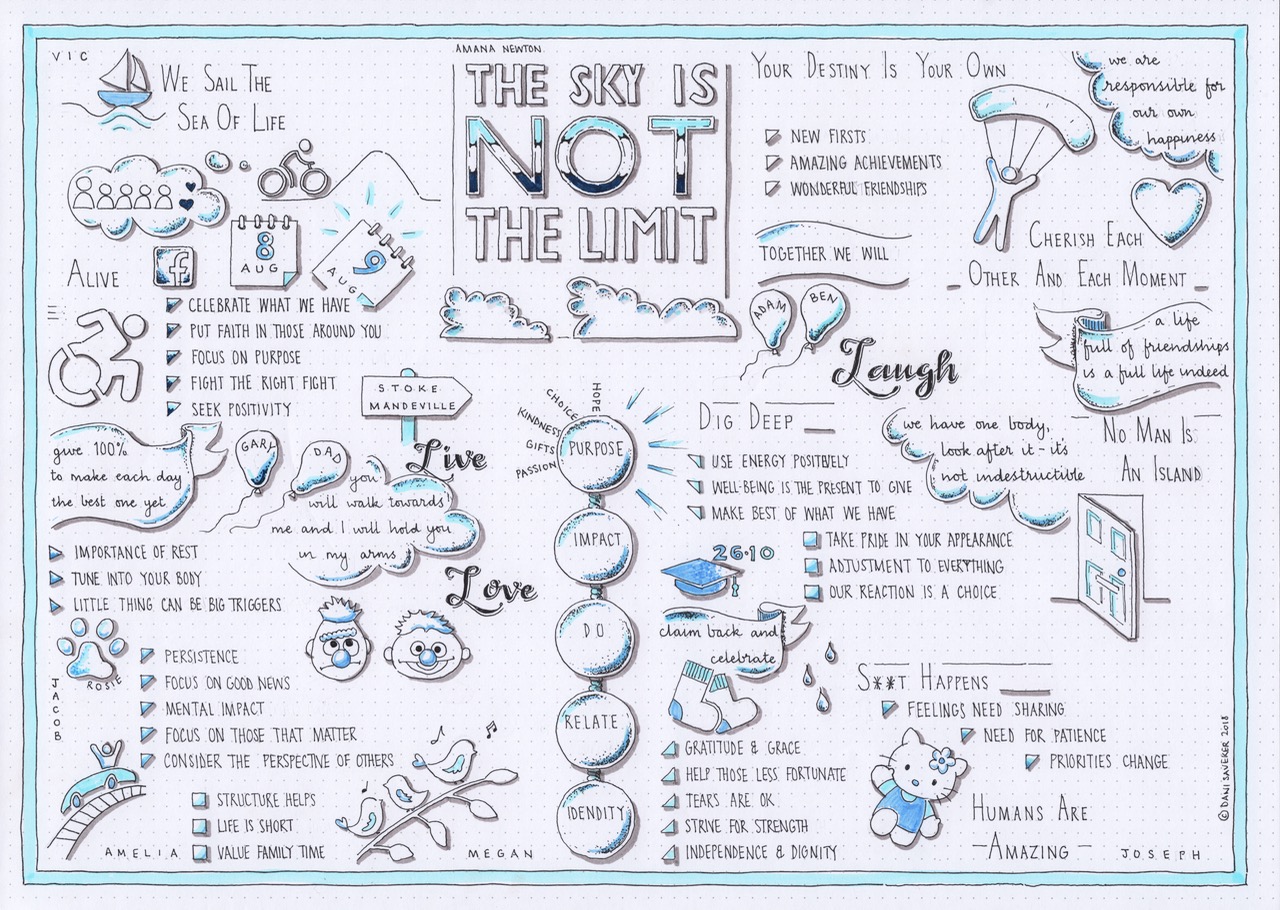 VIC
WE SAIL THE
SEA OF LIFE
8
AUG
9
AUG
f
ALIVE
CELEBRATE WHAT WE HAVE
PUT FAITH IN THOSE AROUND YOU
FOCUS ON PURPOSE
FIGHT THE RIGHT FIGHT
SEEK POSITIVITY
STOKE
MANDEVILLE
give 100%
to make each day
the best one yet
GARY
DAD
Live
you
will walk towards
me and I will hold you
in my arms
IMPORTANCE OF REST
TUNE INTO YOUR BODY
LITTLE THING CAN BE BIG TRIGGERS
Love
ROSIE
JACOB
PERSISTENCE
FOCUS ON GOOD NEWS
MENTAL IMPACT
FOCUS ON THOSE THAT MATTER
CONSIDER THE PERSPECTIVE OF OTHERS
STRUCTURE HELPS
LIFE IS SHORT
VALUE FAMILY TIME
AMELIA
MEGAN
AMANA NEWTON
THE SKY IS
NOT
THE LIMIT
HOPE
CHOICE
KINDNESS
GIFTS
PASSION
PURPOSE
IMPACT
DO
RELATE
IDENDITY
YOUR DESTINY IS YOUR OWN
NEW FIRSTS
AMAZING ACHIEVEMENTS
WONDERFUL FRIENDSHIPS
TOGETHER WE WILL
we are
responsible for
our own
happiness
CHERISH EACH
OTHER AND EACH MOMENT
ADAM
BEN
Laugh
a life
full of friendships
is a full life indeed
DIG DEEP
USE ENERGY POSITIVELY
WELL-BEING IS THE PRESENT TO GIVE
MAKE BEST OF WHAT WE HAVE
we have one body,
look after it - it's
not indestructible
NO MAN IS
AN ISLAND
26.10
TAKE PRIDE IN YOUR APPEARANCE
ADJUSTMENT TO EVERYTHING
OUR REACTION IS A CHOICE
claim back and
celebrate
GRATITUDE & GRACE
HELP THOSE LESS FORTUNATE
TEARS ARE OK
STRIVE FOR STRENGTH
INDEPENDENCE & DIGNITY
S**T HAPPENS
FEELINGS NEED SHARING
NEED FOR PATIENCE
PRIORITIES CHANGE
HUMANS ARE
-AMAZING-
JOSEPH
© DANI SAVEKER 2018